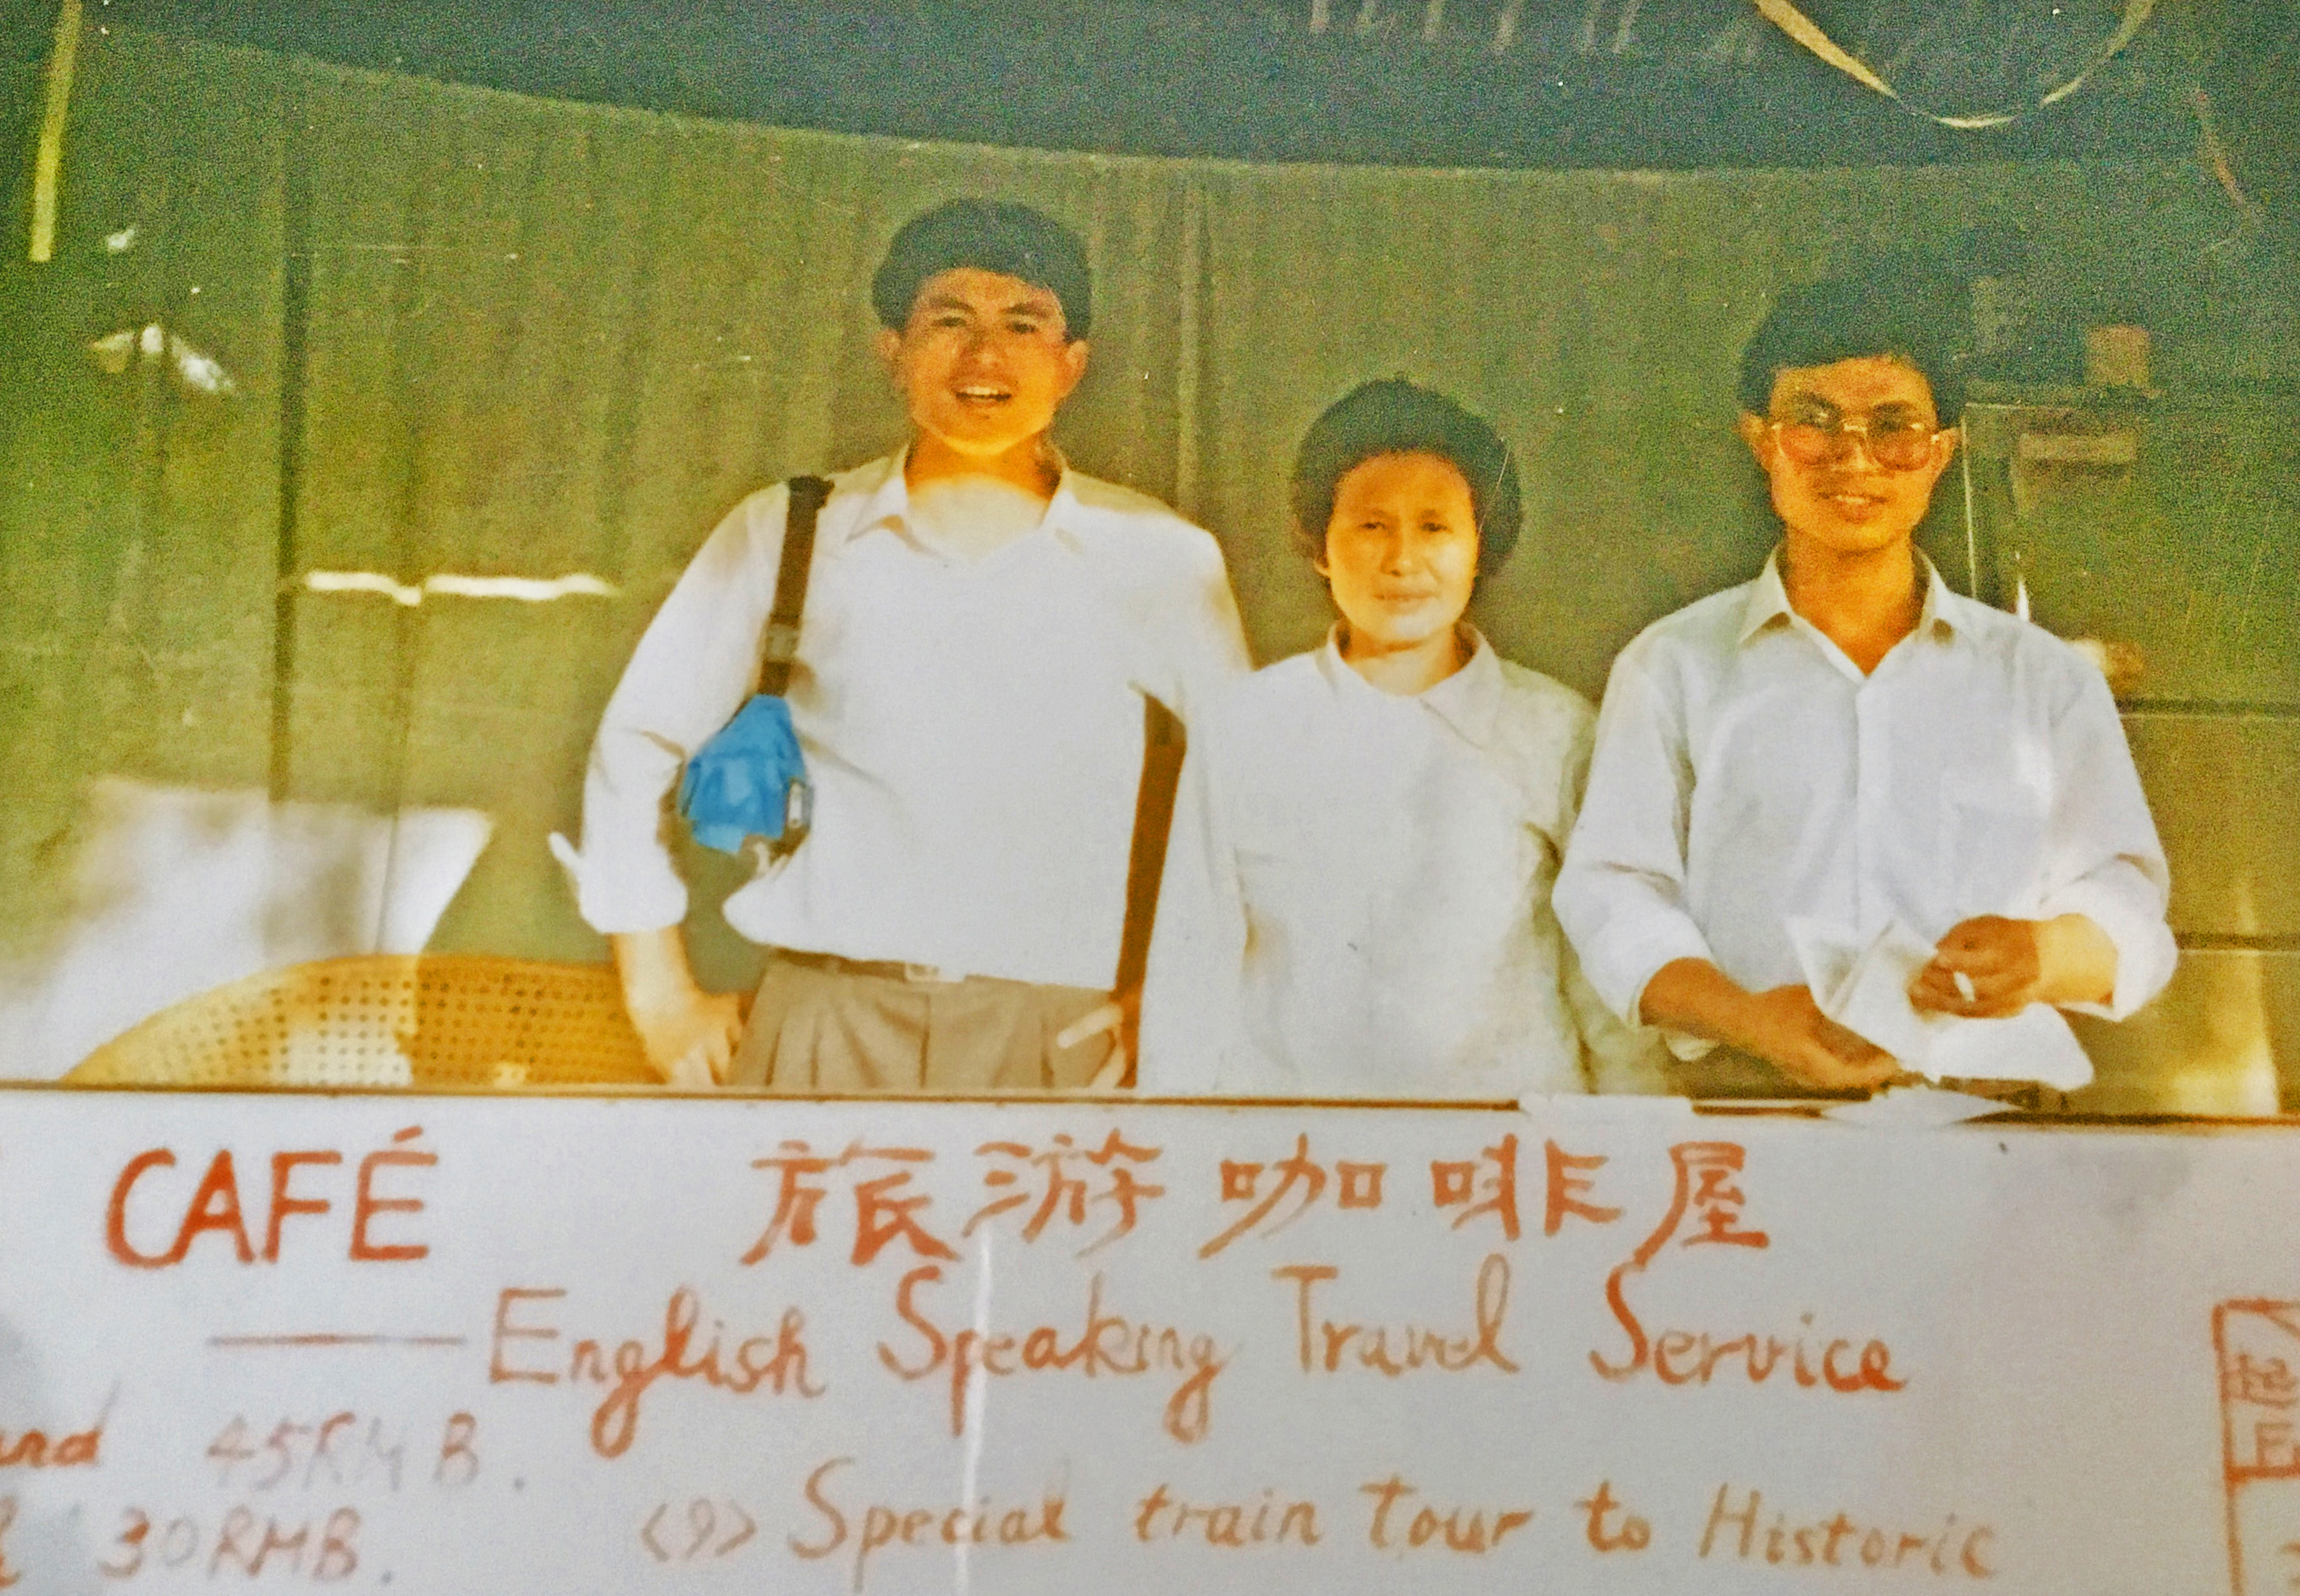 CAFÉ 旅游咖啡屋
English Speaking Travel Service
and 45RMB.
30RMB.
<9> Special train tour to Historic